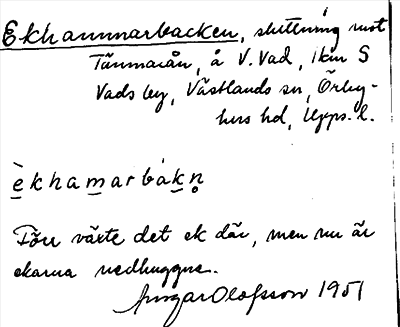 Ekhammarbacken, sluttning mot
Tämnarån, å V. Vad, 1 km S
Vads by, Västlands sn, Örby-
hus hd, Upps. l.
èkhamarbákn̥
Förr växte det ek där, men nu är
ekarna nedhuggna.
Ingar Olofsson 1951